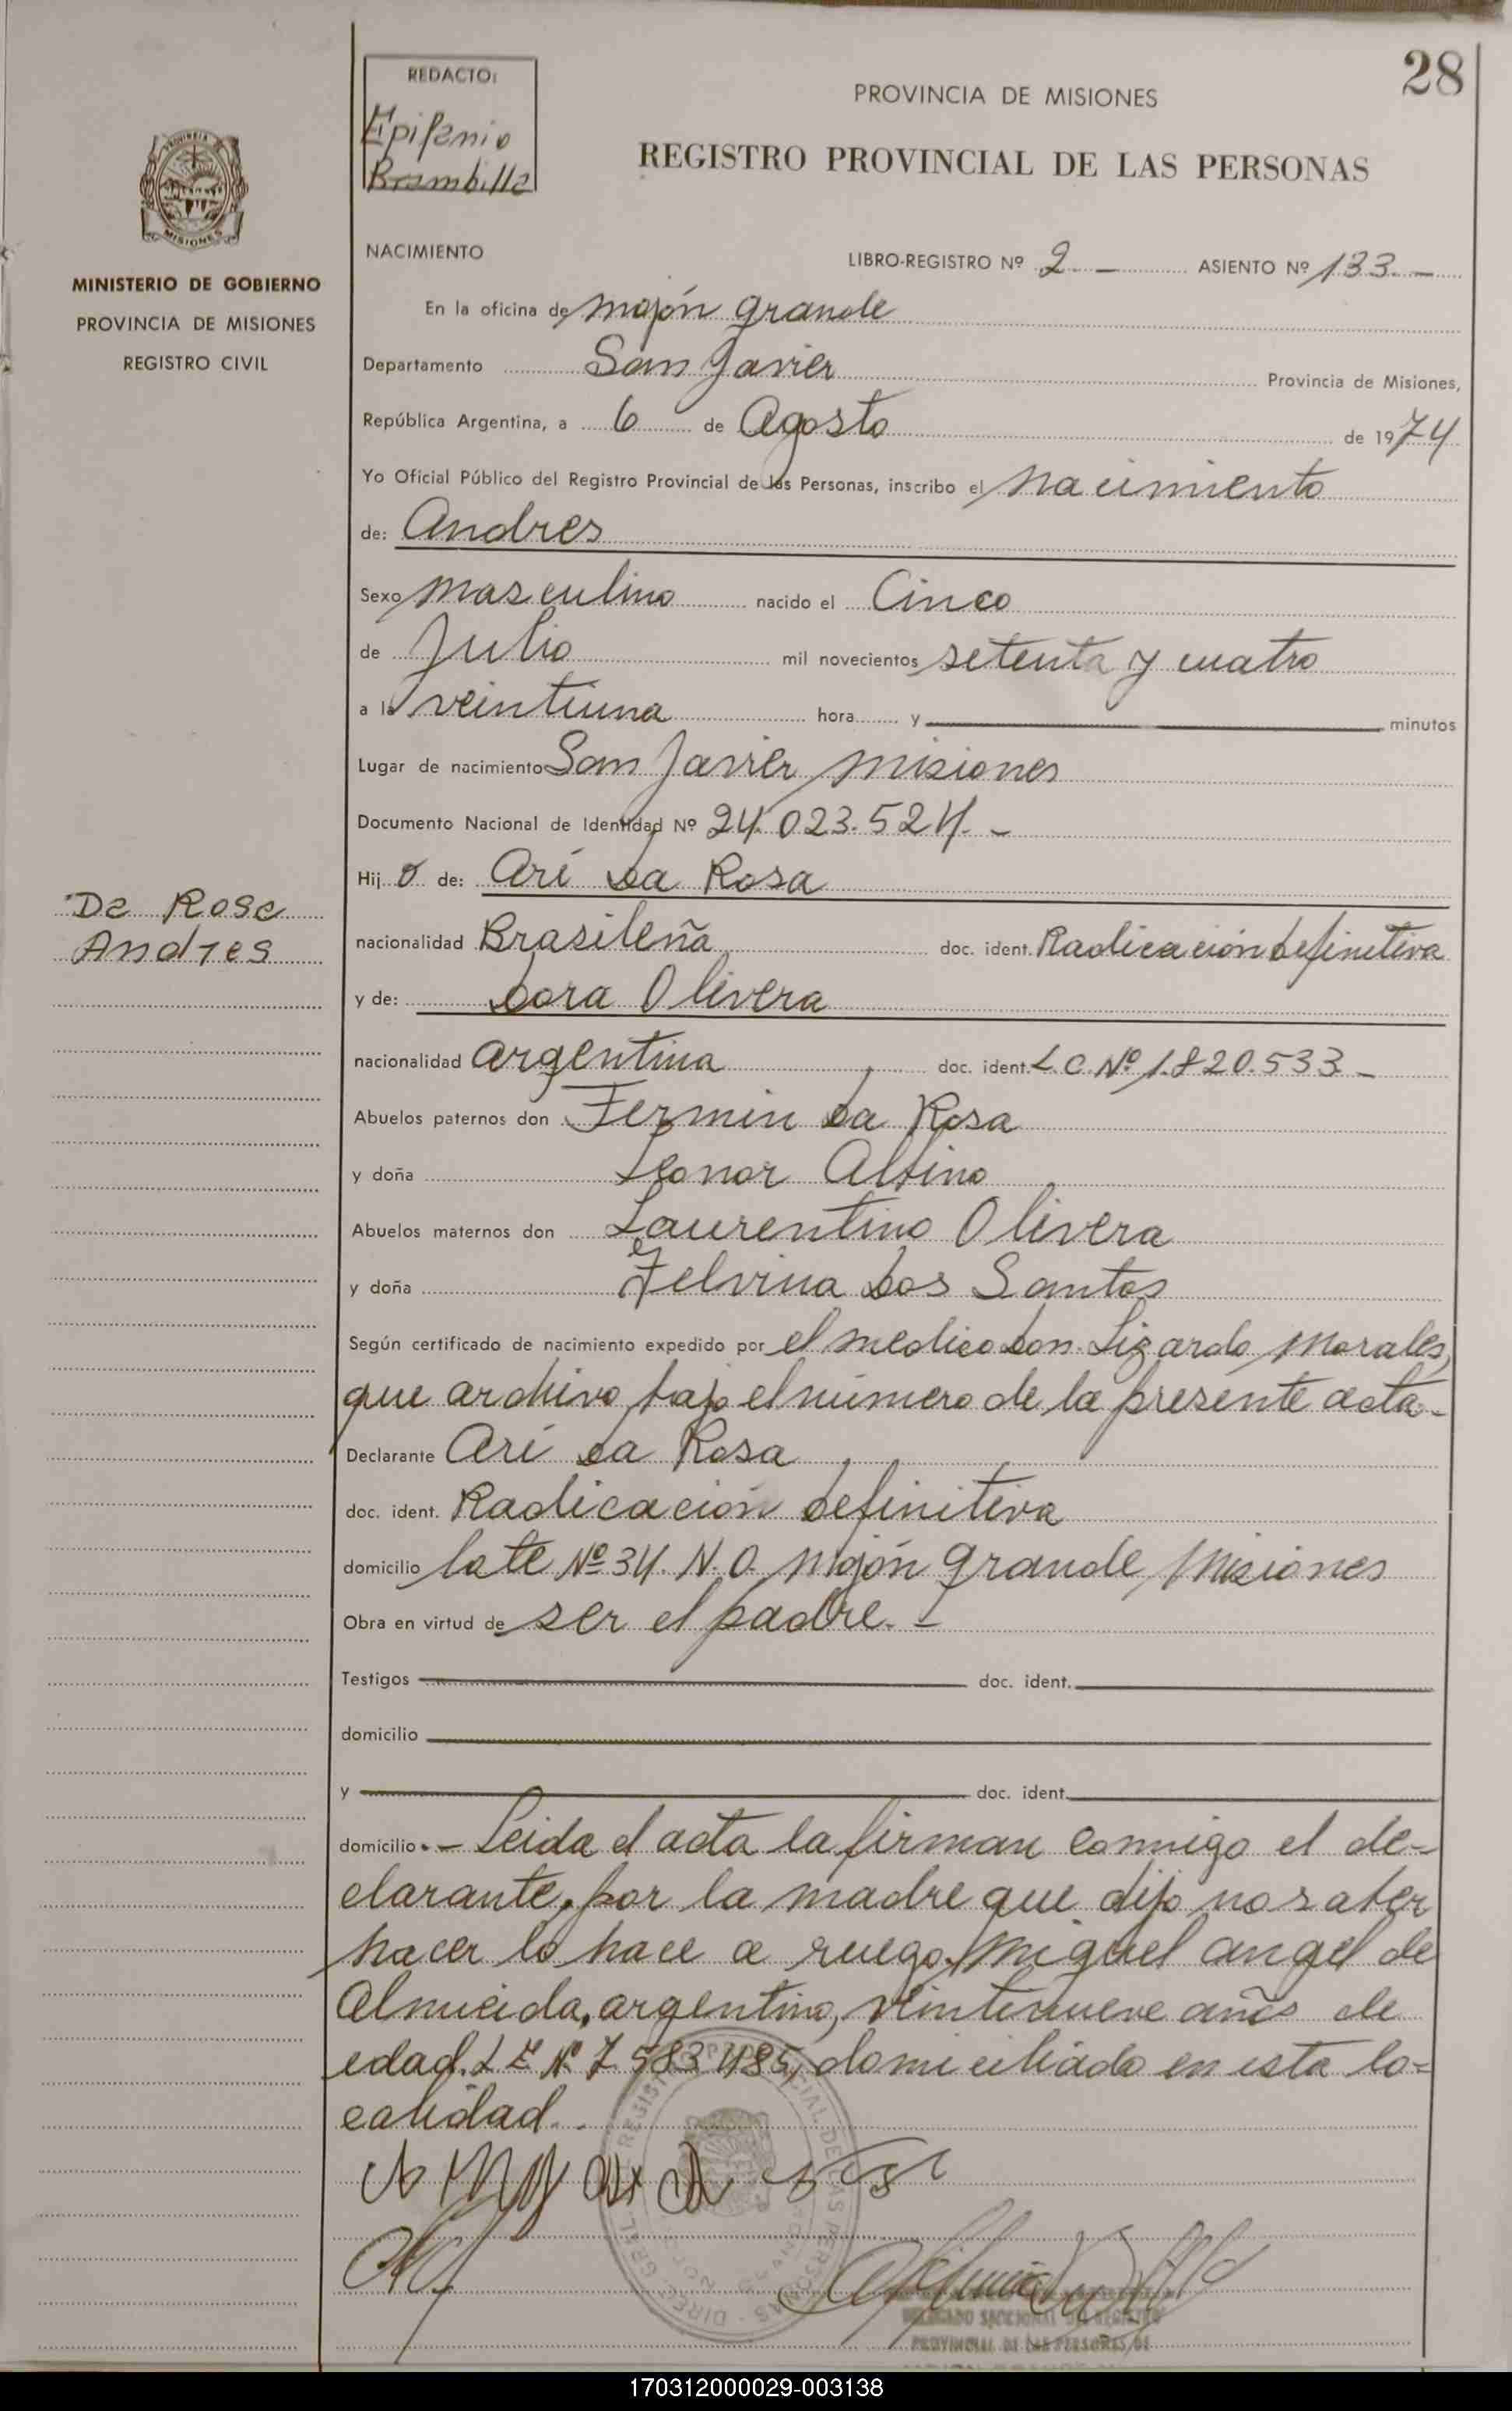 28
REDACTO:
Epifanio
Brambilla
PROVINCIA DE MISIONES
REGISTRO PROVINCIAL DE LAS PERSONAS
MISIONES
MINISTERIO DE GOBIERNO
PROVINCIA DE MISIONES
REGISTRO CIVIL
NACIMIENTO LIBRO-REGISTRO Nº 2 - ASIENTO Nº 133.-
En la oficina de Mojón Grande
Departamento San Javier Provincia de Misiones,
República Argentina, a 6 de Agosto de 1974
Yo Oficial Público del Registro Provincial de las Personas, inscribo el nacimiento
de: Andres
Sexo masculino nacido el Cinco
de Julio mil novecientos setenta y cuatro
a la veintiuna hora y minutos
Lugar de nacimiento San Javier Misiones
Documento Nacional de Identidad Nº 24.023.524.-
Hijo de: Ari Da Rosa
Da Rosa
Andres
nacionalidad Brasileña doc. ident. Radicación definitiva
y de: Dora Olivera
nacionalidad argentina doc. ident. L.C. Nº 1.820.533.-
Abuelos paternos don Fermin Da Rosa
y doña Leonor Albino
Abuelos maternos don Laurentino Olivera
y doña Felvina Dos Santos
Según certificado de nacimiento expedido por el medico Don Lizardo Morales,
que archivo bajo el número de la presente acta.-
Declarante Ari Da Rosa
doc. ident. Radicación definitiva
domicilio lote Nº 34. N.O. Mojón Grande, Misiones
Obra en virtud de ser el padre.-
Testigos doc. ident.
domicilio
y doc. ident.
domicilio.- Leida el acta la firman conmigo el de-
clarante, por la madre que dijo no saber
hacer lo hace a ruego Miguel Angel de
Almeida, argentino, veintinueve años de
edad. L E Nº 7.583.485, domiciliado en esta lo-
calidad.
DELEGADO SECCIONAL DEL REGISTRO
PROVINCIAL DE LAS PERSONAS DE
170312000029-003138